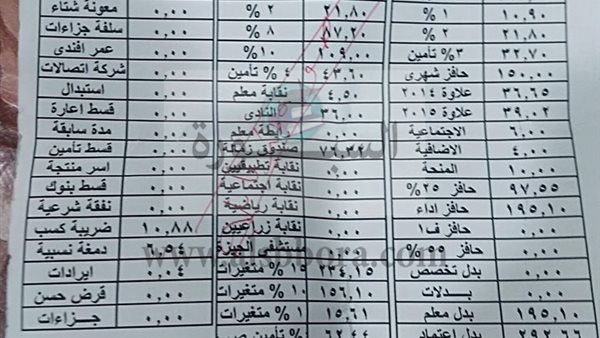 ١٠,٩٠ ١ % ٢١,٨٠ ٢ % ٠,٠٠ معونة شتاء
٢١,٨٠ ٢ % ٨٧,٢٠ ٨ % ٠,٠٠ سلفة جزاءات
٣٢,٧٠ ٣% تأمين ١٠٩,٠٠ ١٠% ٠,٠٠ عمر افندى
١٥٠,٠٠ حافز شهرى ٤٣,٦٠ ٤ % تأمين ٠,٠٠ شركة اتصالات
٣٦,٦٥ علاوة ٢٠١٤ ٤,٥٠ نقابة معلم ٠,٠٠ استبدال
٣٩,٠٢ علاوة ٢٠١٥ ٣٦,٠٠ النادى ٠,٠٠ قسط اعارة
٦,٠٠ الاجتماعية ٠,٠٠ رابطة معلم ٠,٠٠ مدة سابقة
٤,٠٠ الاضافية صندوق زمالة ٠,٠٠ قسط تأمين
١٠,٠٠ المنحة ٠,٠٠ نقابة تطبيقيين ٠,٠٠ اسر منتجة
٩٧,٥٥ حافز ٢٥% ٠,٠٠ نقابة اجتماعية ٠,٠٠ قسط بنوك
١٩٥,١٠ حافز اداء ٠,٠٠ نقابة رياضية ٠,٠٠ نفقة شرعية
٠,٠٠ حافز ف١ ٠,٠٠ نقابة زراعيين ١٠,٨٨ ضريبة كسب
٠,٠٠ حافز ٥٥ % ٠,٠٠ مستشفى الجيزة ٦,٥٤ دمغة نسبية
٠,٠٠ بدل تخصص ٢٣٤,١٥ ١٥ % متغيرات ٠,٠٤ ايرادات
٠,٠٠ بدلات ١٥٦,١٠ ١٠ % متغيرات ٠,٠٠ قرض حسن
١٩٥,١٠ بدل معلم ١٥,٦١ ١ % متغيرات ٠,٠٠ جزاءات
٢٩٢,٦٦ بدل اعتماد ٦٢,٤٤